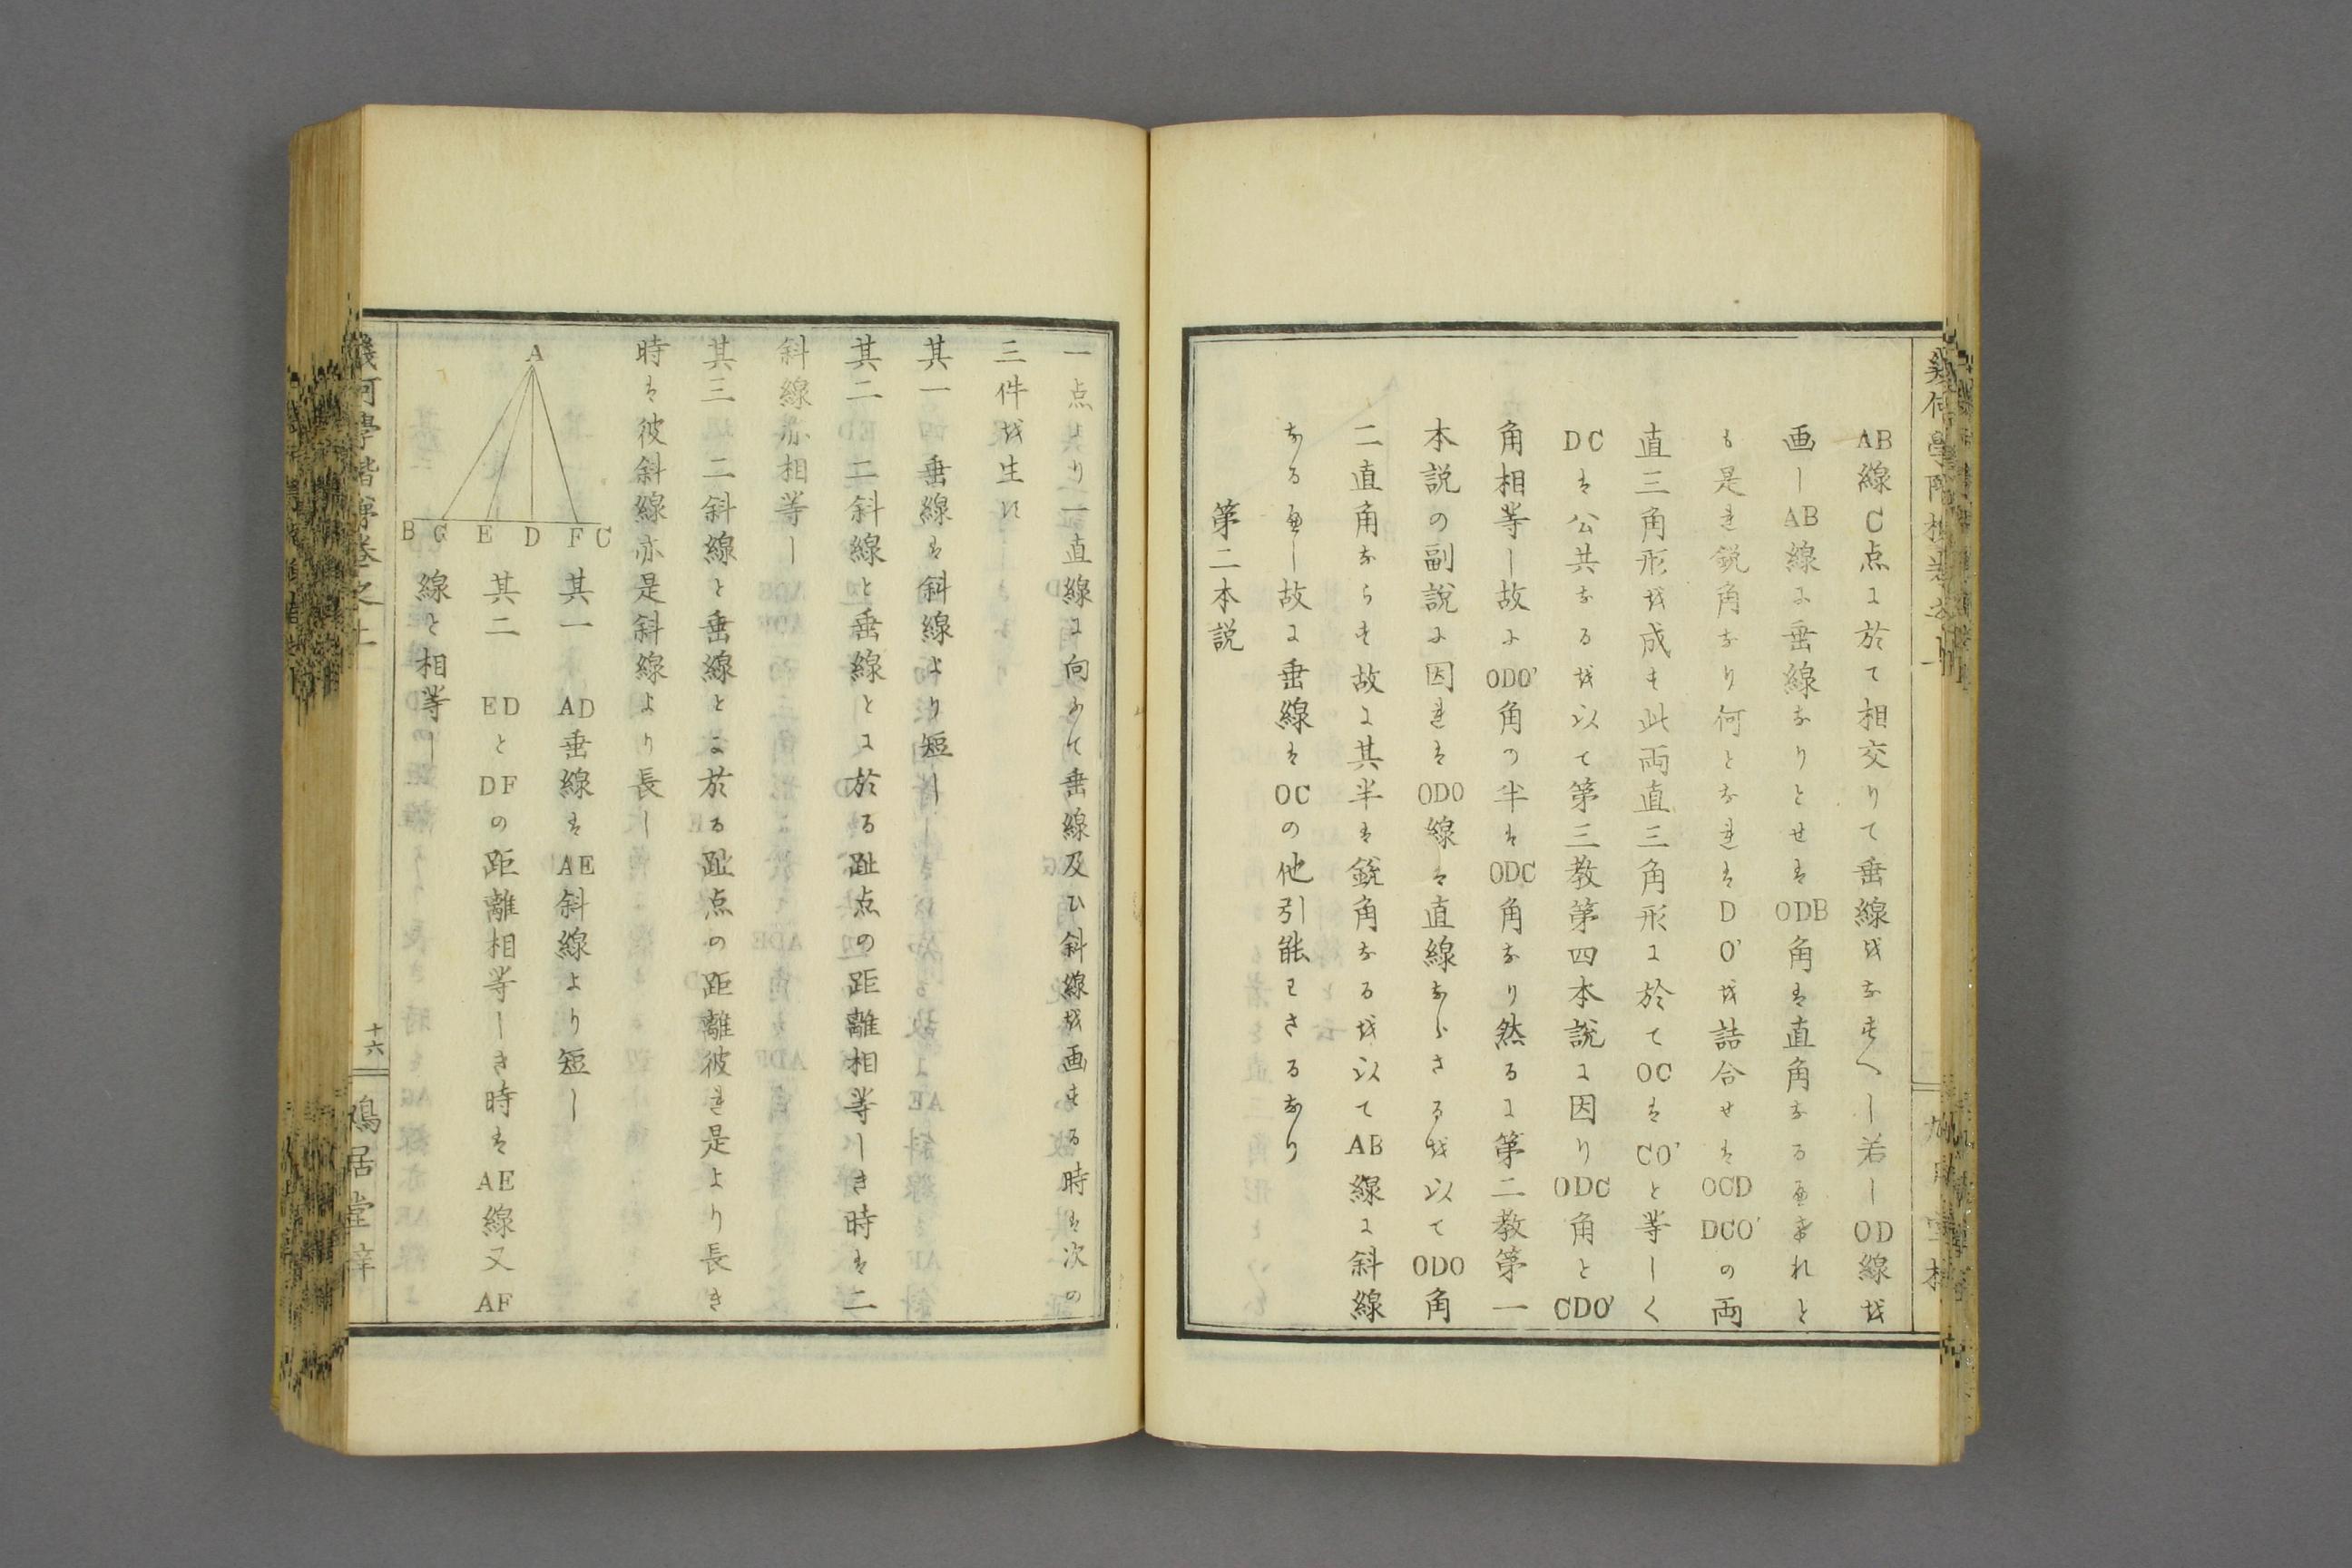 AB線C点に於て相交りて垂線をなすへし若しOD線を
画しAB線に垂線なりとせはODB角は直角なるへけれと
も是れ鋭角なり何となれはD O'を詰合せはOCD DCO'の両
直三角形を成す此両直三角形に於てOCはCO'と等しく
DCは公共なるを以て第三教第四本説に因りODC角とCDO'
角相等し故にODO'角の半はODC角なり然るに第二教第一
本説の副説に因れはODO線は直線ならさるを以てODO角
二直角ならす故に其半は鋭角なるを以てAB線に斜線
なるへし故に垂線はOCの他引能わさるなり
第二本説
一点より一直線に向ふて垂線及ひ斜線を画する時は次の
三件を生す
其一 垂線は斜線より短し
其二 二斜線と垂線とに於る趾点の距離相等しき時は二
斜線亦相等し
其三 二斜線と垂線とに於る趾点の距離彼れ是より長き
時は彼斜線亦是斜線より長し
A
B G E D F C
其一 AD垂線はAE斜線より短し
其二 EDとDFの距離相等しき時はAE線又AF
線と相等し
幾何學階梯卷之上
十六